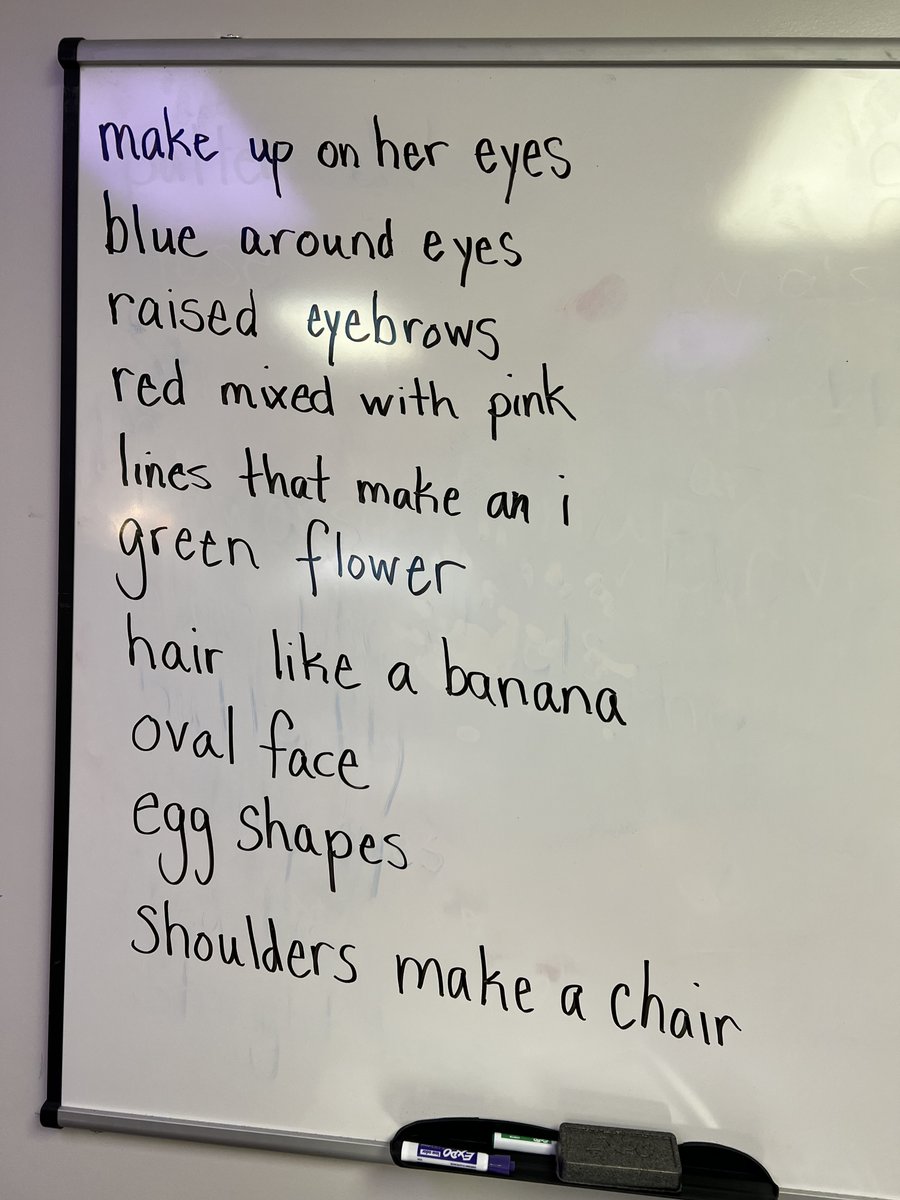 make up on her eyes
blue around eyes
raised eyebrows
red mixed with pink
lines that make an i
green flower
hair like a banana
oval face
egg shapes
shoulders make a chair
EXPO